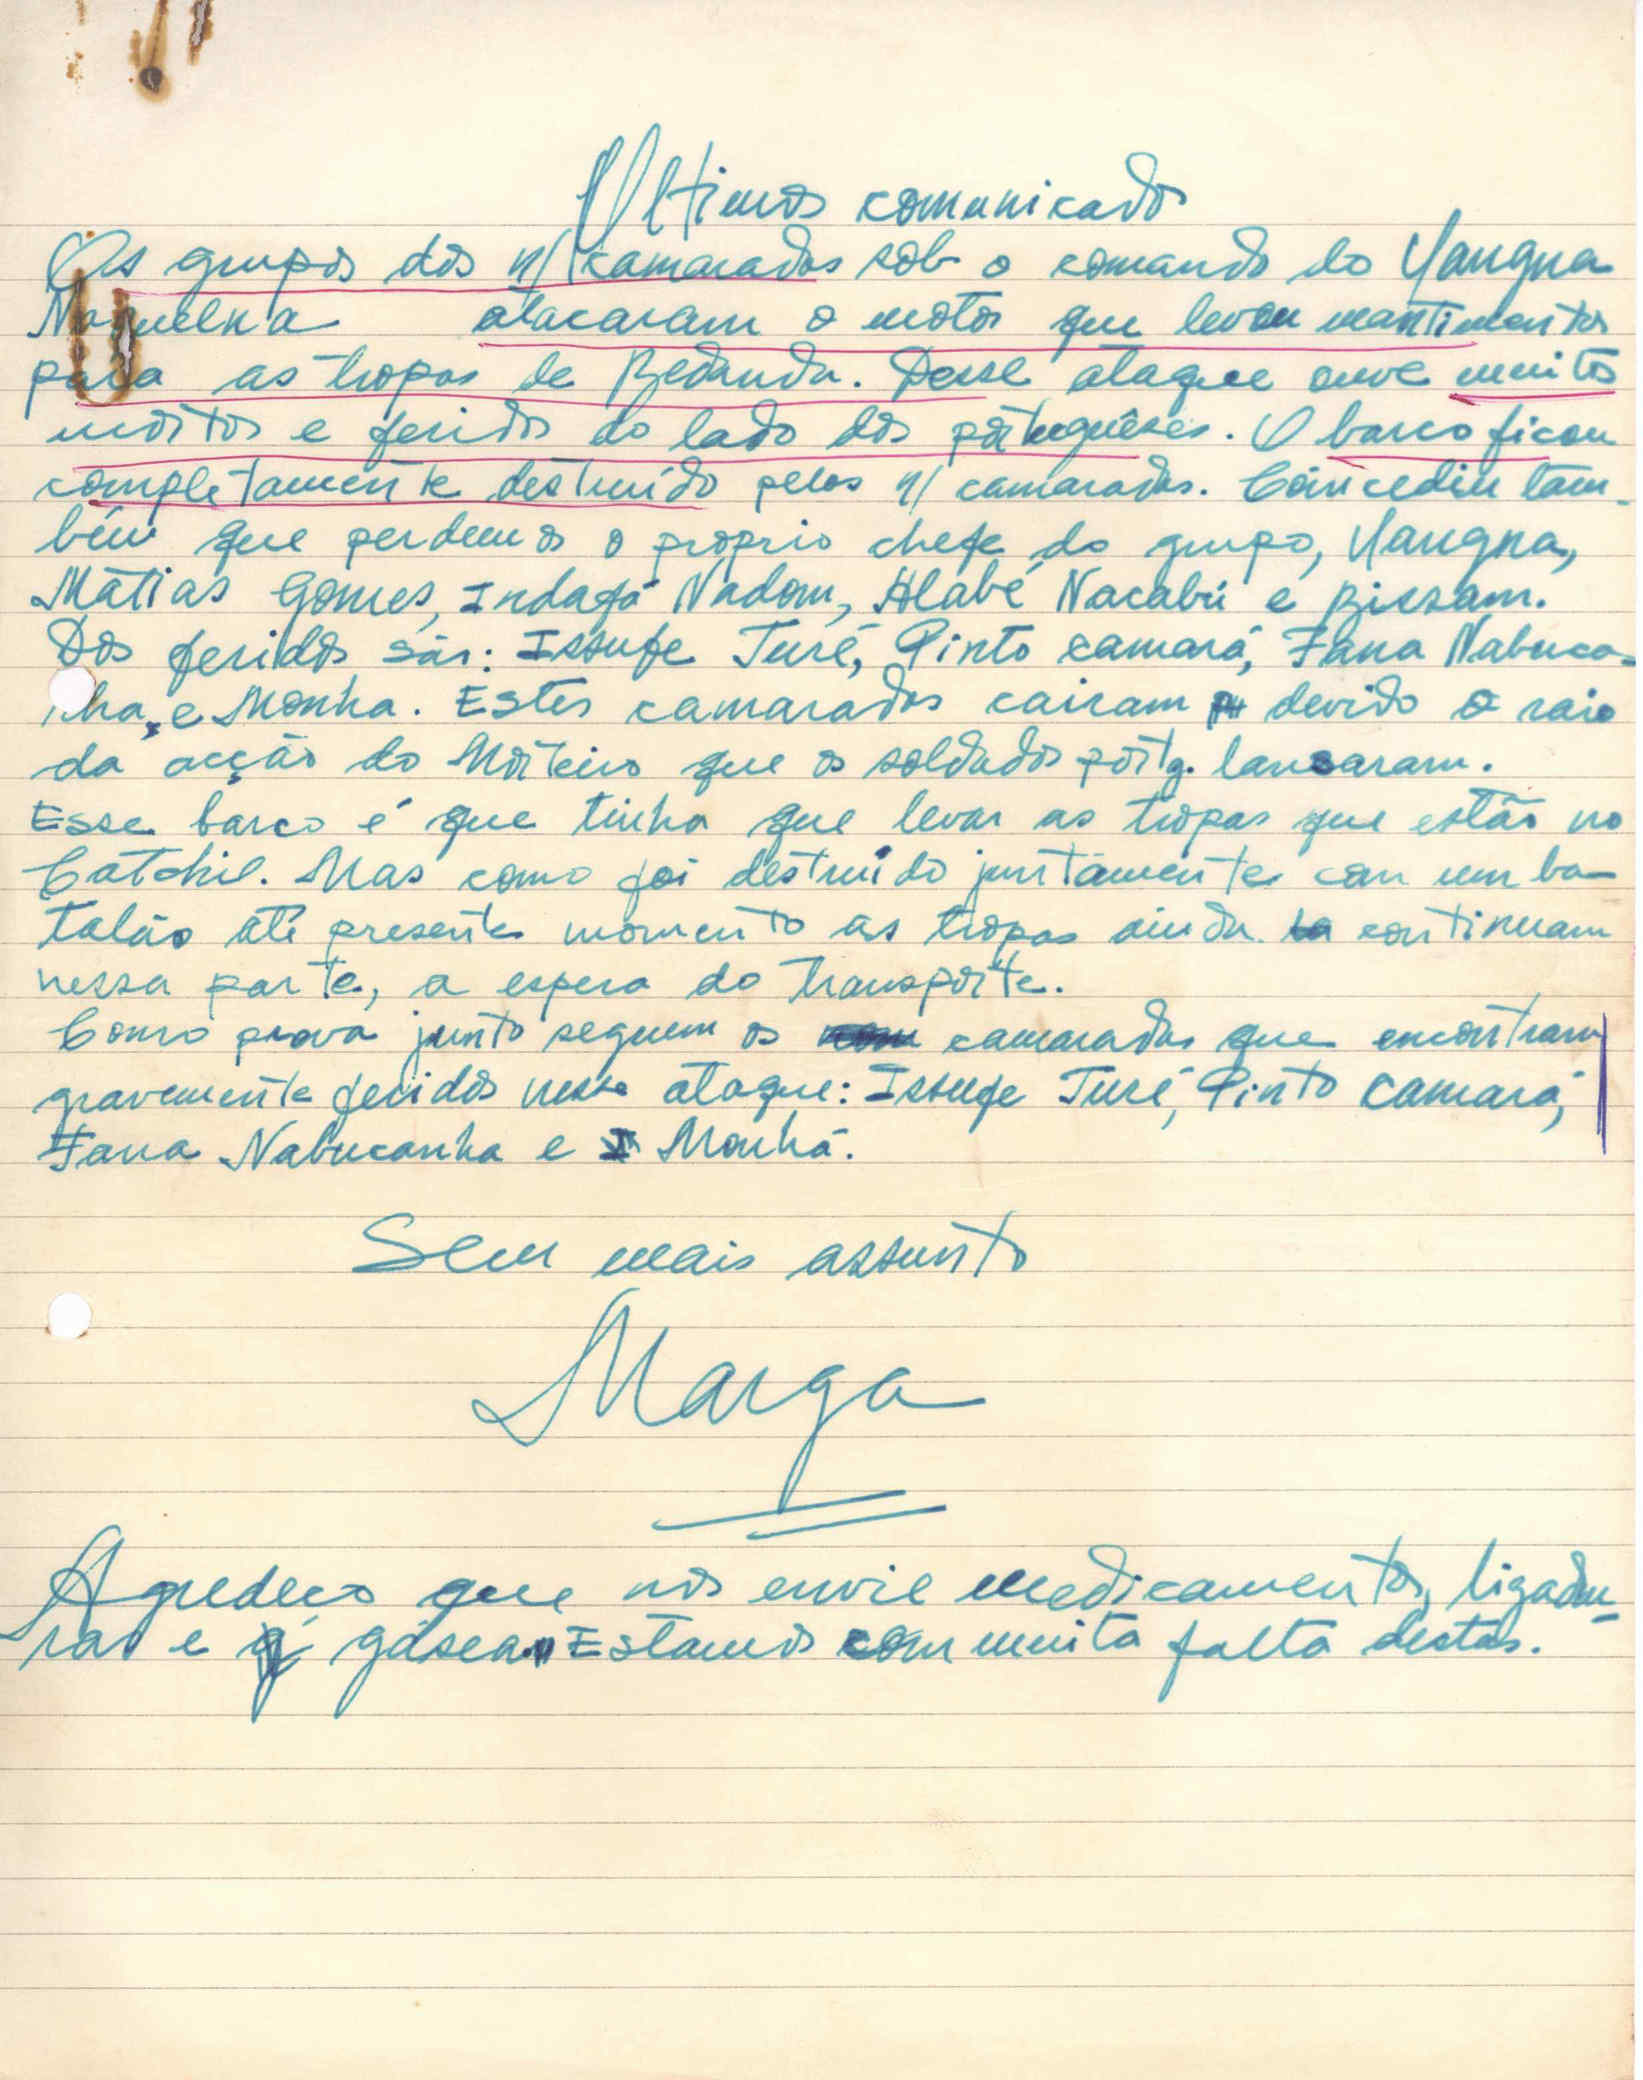 Ultimos comunicados
Os grupos dos n/ camaradas sob o comando do Yangna
Naquelna atacaram o motor que levou mantimentos
para as tropas de Bedanda. Desse ataque ouve muitos
mortos e feridos do lado dos portuguêses. O barco ficou
completamente destruído pelos n/ camaradas. Coincediu tam-
bém que perdemos o proprio chefe do grupo, Yangna,
Matias Gomes, Indafá Nadom, Alabé Nacabú e Bissam.
Dos feridos são: Issufe Turé, Pinto camará, Fana Nabuca-
nha, e Monha. Estes camaradas cairam devido o raio
da acção do Morteiro que os soldados portg. lansaram.
Esse barco é que tinha que levar as tropas que estão no
Catchil. Mas como foi destruído juntamente com um ba-
talão até presente momento as tropas ainda continuam
nessa parte, a espera do transporte.
Como prova junto seguem os camaradas que encontram
gravemente feridos nesse ataque: Issufe Turé, Pinto Camará,
Fana Nabucanha e Monhá.
Sem mais assunto
Marga
Agredeço que nos envie medicamentos, ligadu-
ras e gásea. Estamos com muita falta destas.